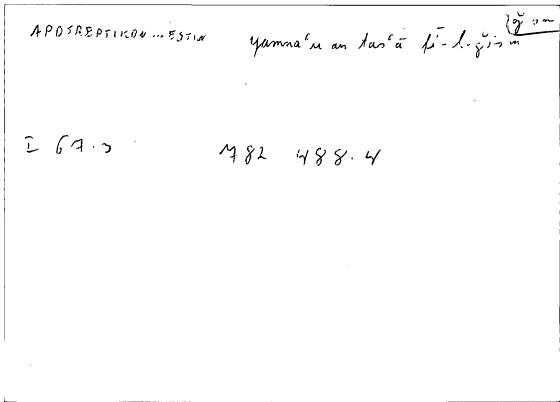 ğsm
APOTREPTIKON...ESTIN yamnaʿu an tasʿā fī-l-ğism
I 67.3 782 488.4